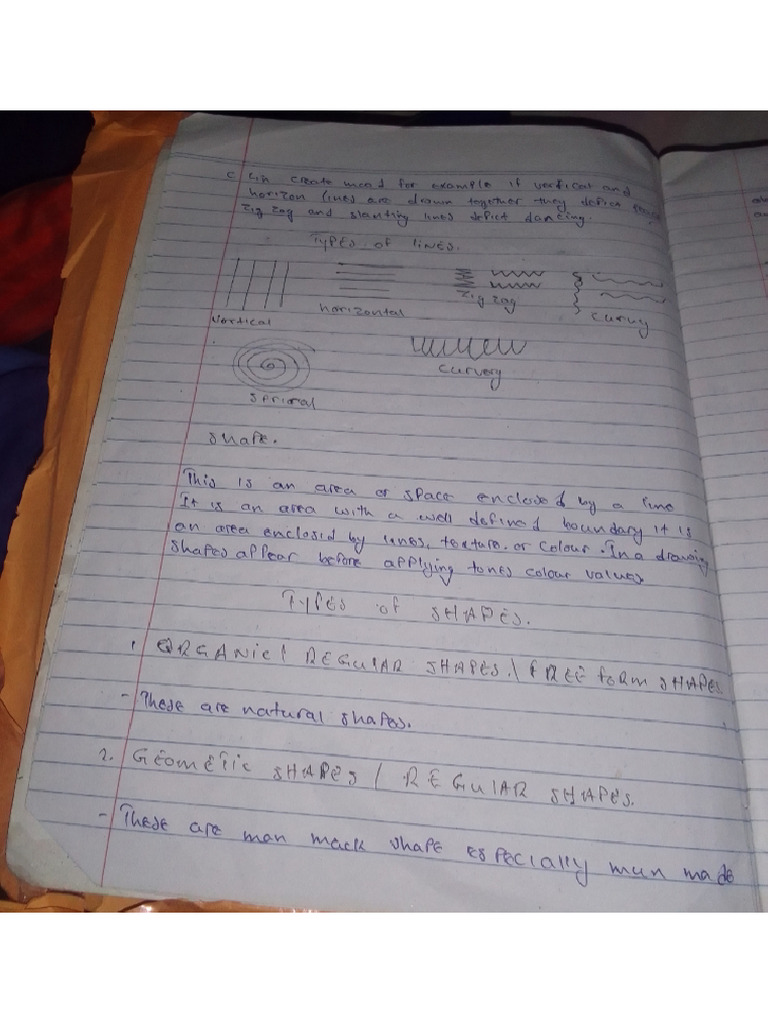 C Can create mood for example if vertical and
horizon lines are drawn together they depict
Zig zag and slanting lines depict dancing.
Types of lines.
Vertical
horizontal
Zig zag
curvy
Spriral
curvery
Shape.
This is an area or space enclosed by a line
It is an area with a well defined boundary it is
an area enclosid by lines, texture or colour. In a drawing
shapes appear before applying tones colour values
TYPES of SHAPES.
1. ORGANIC/ REGULAR SHAPES./ FREE form SHAPES
- These are natural shapes.
2. GEOMETIC SHAPES / REGULAR SHAPES.
- These are man mack shape especially mun made